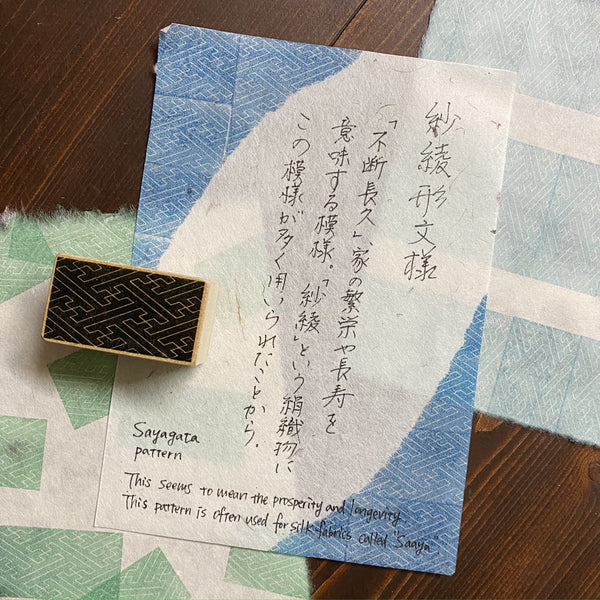 紗綾形文様
「不断長久」、家の繁栄や長寿を
意味する模様。「紗綾」という絹織物に
この模様が多く用いられたことから。
Sayagata
pattern
This seems to mean the prosperity and longevity.
This pattern is often used for silk-fabrics called "Saaya".